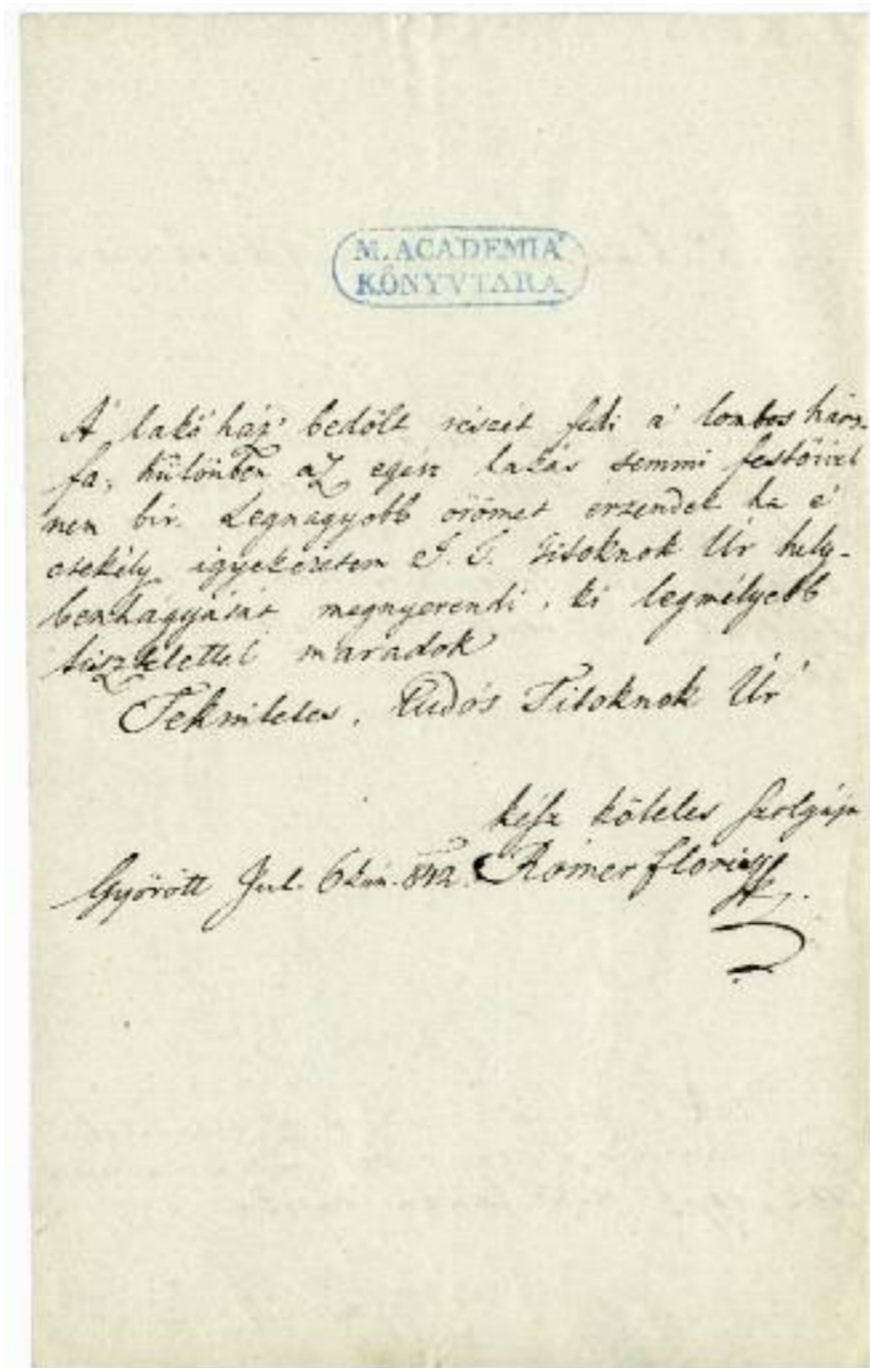 M. ACADEMIA
KÖNYVTARA
A' lakó ház' bedölt részét fedi a' lombos hárs-
fa, különben az egész lakás semmi festőivel
nem bir. Legnagyobb örömet érzendek ha e'
csekély igyekezetem T. T. titoknok Úr hely-
benhagyását megnyerendi, ki legmélyebb
tisztelettel maradok
Tekintetes, Tudós Titoknok Úr'
kész köteles szolgája
Győrött Jul. 6kán. 842. Rómer Flóris